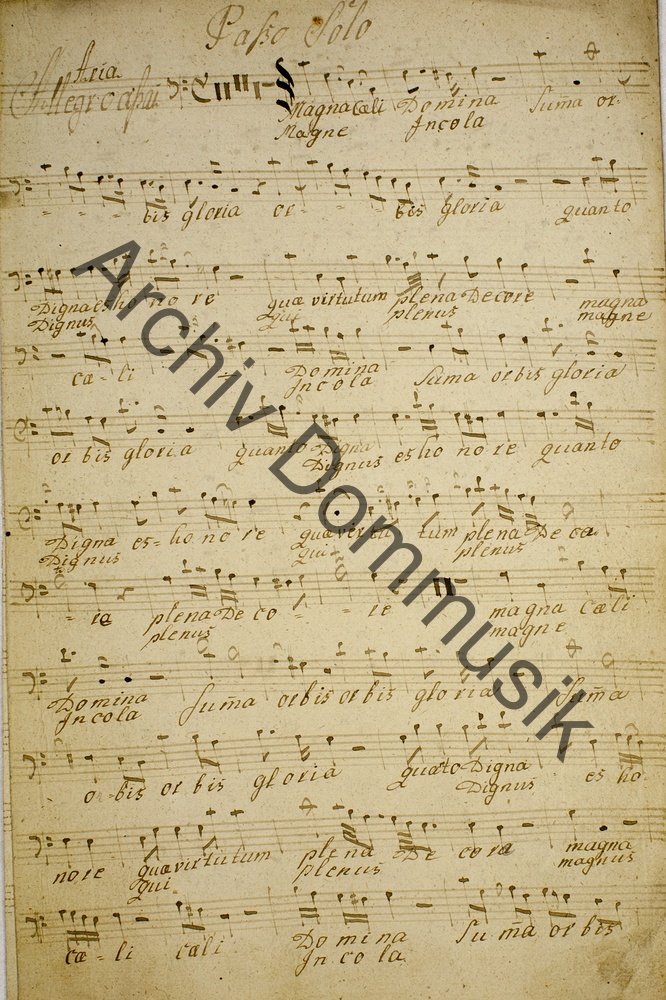 Paßo Solo
Aria
Allegro assai
Magna Cæli Domina Sum̄a or-
Magne Incola
bis gloria or - - bis gloria quanto
Digna es ho no re quæ virtutum plena Decore magna
Dignus qui plenus magne
cæ - li Domina Suma orbis gloria
Incola
or bis gloria quanto Digna es ho no re quanto
Dignus
Digna es - ho no re quæ virtu tum plena De co
Dignus qui plenus
- re plena De co - - re magna cæli
plenus magne
Domina Sum̄a orbis orbis gloria Sum̄a
Incola
or - bis or bis gloria quāto Digna es ho
Dignus
nore quæ virtutum plena De core magna
qui plenus magnus
cæ - li cæli Domina Sum̄a orbis
In co la
Archiv Dommusik